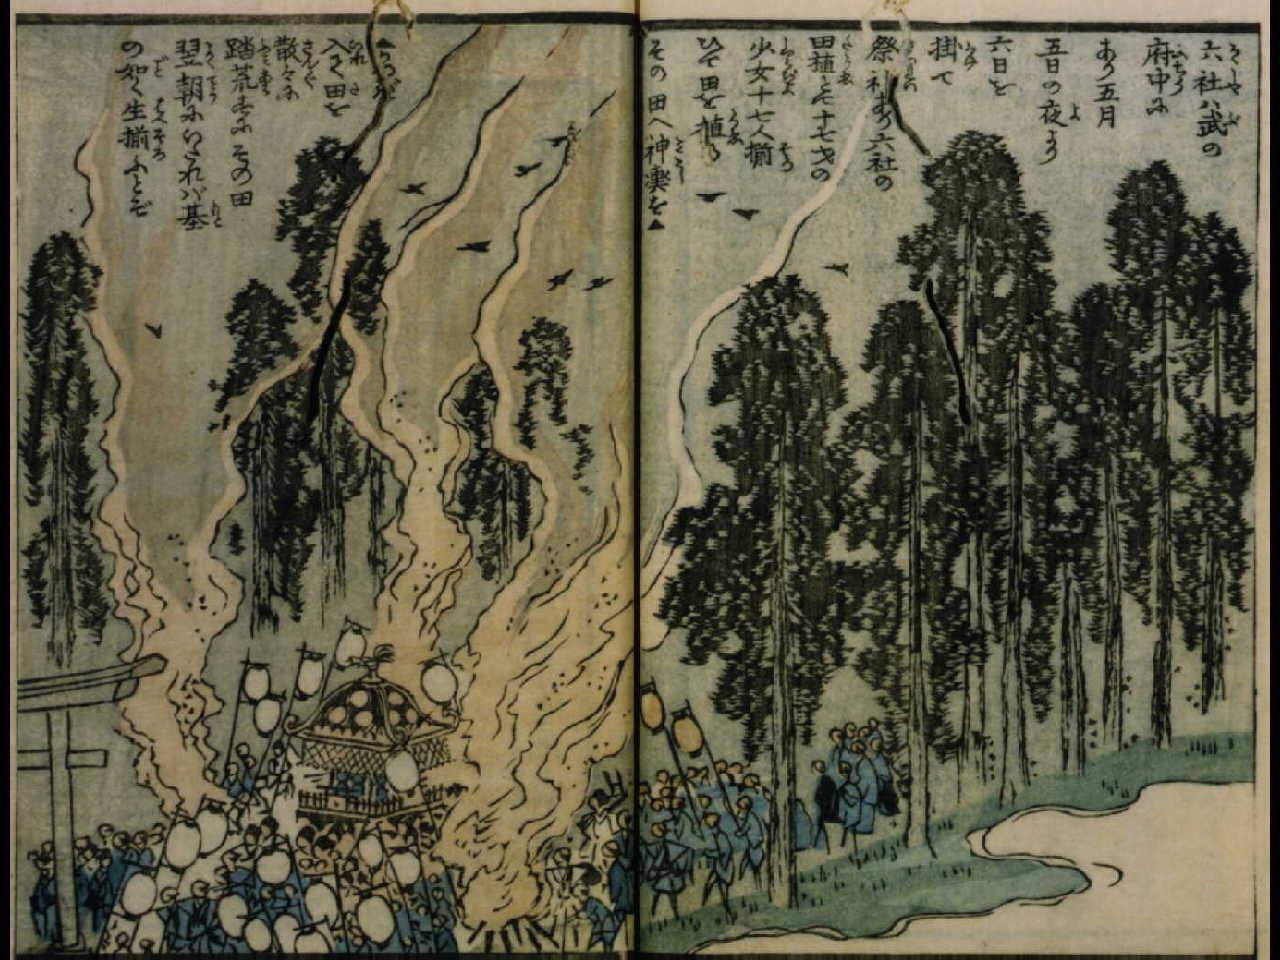 六社ハ武の
府中に
あり五月
五日の夜より
六日を
掛て
祭礼あり六社の
田植とて十七才の
少女十七人揃
ひて田を植る
その田へ神輿を▲
▲かつぎ
入て田を
散々に
踏荒すにその田
翌朝にいたれバ基
の如く生揃ふとぞ